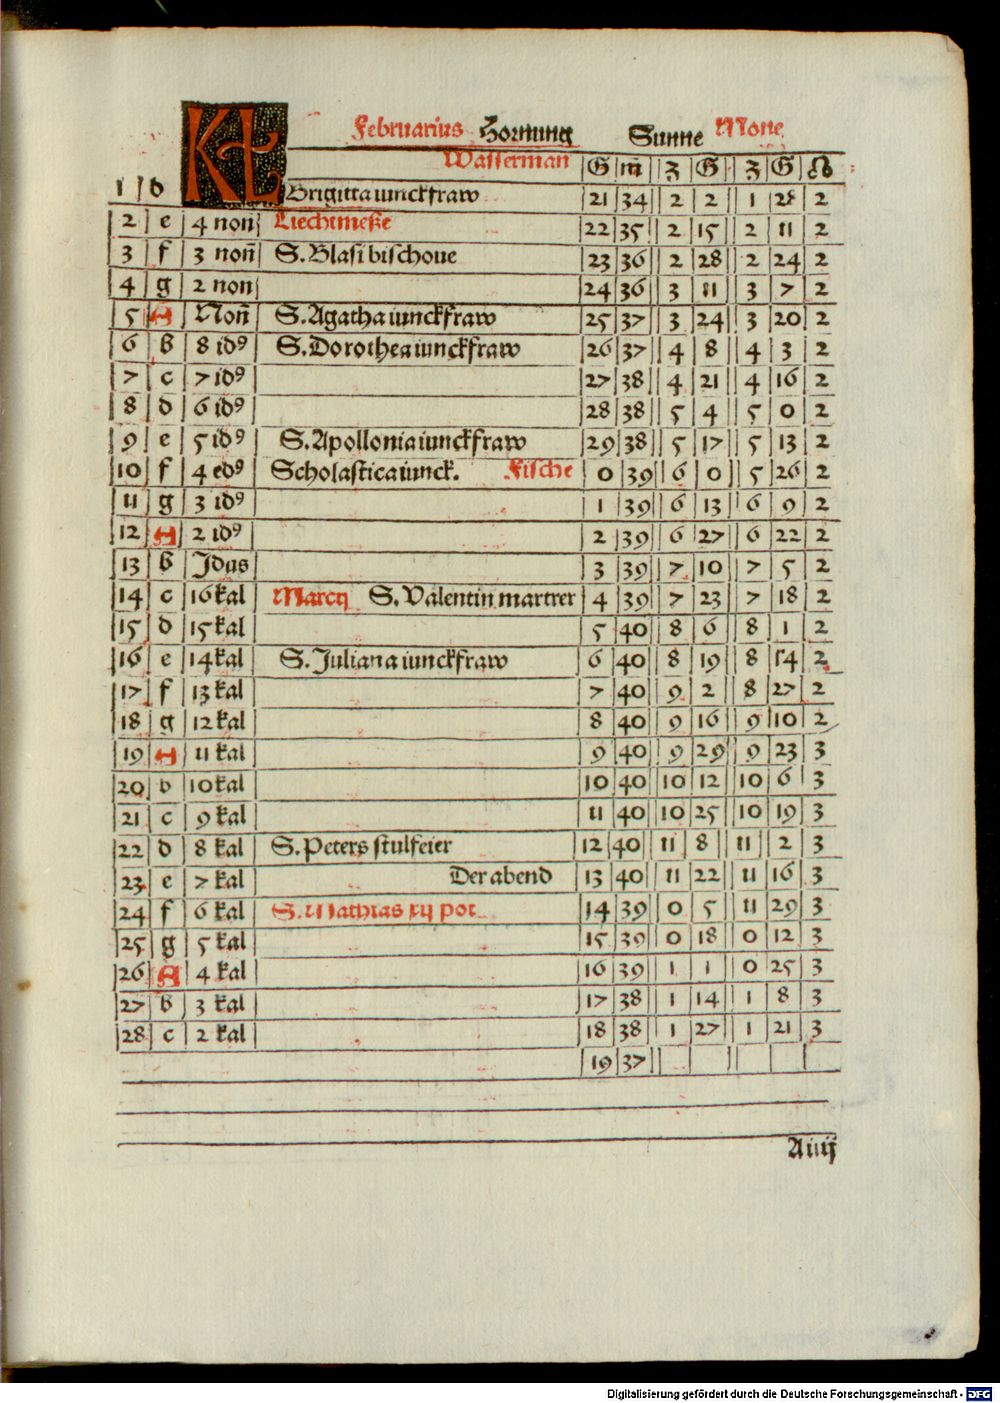 KL Februarius Hornung Sunne Mone
Wasserman G m̄ Z G Z G ☊
1 d Brigitta iunckfraw 21 34 2 2 1 28 2
2 e 4 non̄ Liechtmeße 22 35 2 15 2 11 2
3 f 3 non̄ S. Blasi bischoue 23 36 2 28 2 24 2
4 g 2 non 24 36 3 11 3 7 2
5 A Non̄ S. Agatha iunckfraw 25 37 3 24 3 20 2
6 b 8 idꝰ S. Dorothea iunckfraw 26 37 4 8 4 3 2
7 c 7 idꝰ 27 38 4 21 4 16 2
8 d 6 idꝰ 28 38 5 4 5 0 2
9 e 5 idꝰ S. Apollonia iunckfraw 29 38 5 17 5 13 2
10 f 4 edꝰ Scholastica iunck. Fische 0 39 6 0 5 26 2
11 g 3 idꝰ 1 39 6 13 6 9 2
12 A 2 idꝰ 2 39 6 27 6 22 2
13 b Jdus 3 39 7 10 7 5 2
14 c 16 kal Marcij S. Valentin martrer 4 39 7 23 7 18 2
15 d 15 kal 5 40 8 6 8 1 2
16 e 14 kal S. Juliana iunckfraw 6 40 8 19 8 14 2
17 f 13 kal 7 40 9 2 8 27 2
18 g 12 kal 8 40 9 16 9 10 2
19 A 11 kal 9 40 9 29 9 23 3
20 b 10 kal 10 40 10 12 10 6 3
21 c 9 kal 11 40 10 25 10 19 3
22 d 8 kal S. Peters stulfeier 12 40 11 8 11 2 3
23 e 7 kal Der abend 13 40 11 22 11 16 3
24 f 6 kal S. Mathias xij pot 14 39 0 5 11 29 3
25 g 5 kal 15 39 0 18 0 12 3
26 A 4 kal 16 39 1 1 0 25 3
27 b 3 kal 17 38 1 14 1 8 3
28 c 2 kal 18 38 1 27 1 21 3
19 37
Aiiij
Digitalisierung gefördert durch die Deutsche Forschungsgemeinschaft - DFG